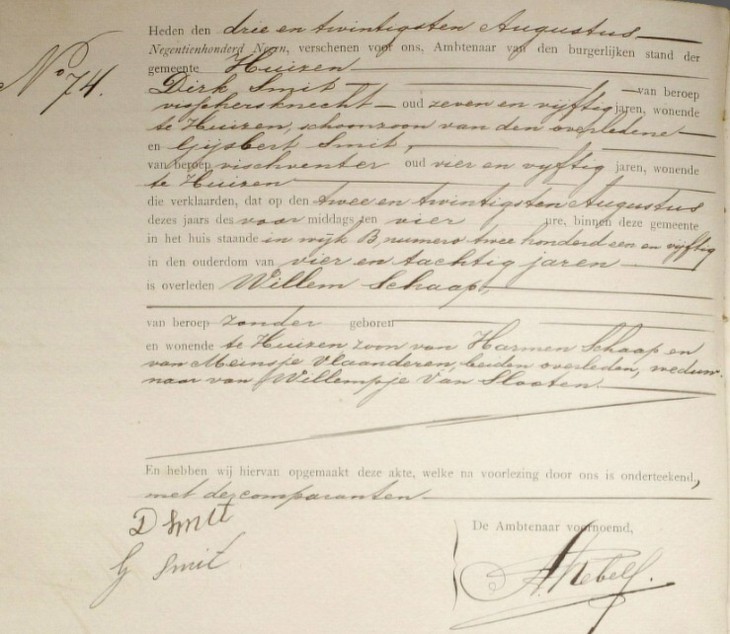 No 74.
Heden den drie en twintigsten Augustus
Negentienhonderd Negen, verschenen voor ons, Ambtenaar van den burgerlijken stand der
gemeente Huizen
Dirk Smit van beroep
visschersknecht oud zeven en vijftig jaren, wonende
te Huizen, schoonzoon van den overledene
en Gijsbert Smit,
van beroep vischventer oud vier en vijftig jaren, wonende
te Huizen
die verklaarden, dat op den twee en twintigsten Augustus
dezes jaars des voor middags ten vier ure, binnen deze gemeente
in het huis staande in wijk B, numero twee honderd een en vijftig
in den ouderdom van vier en tachtig jaren
is overleden Willem Schaap,
van beroep zonder geboren
en wonende te Huizen zoon van Harmen Schaap en
van Meinsje Vlaanderen, beiden overleden, weduw-
naar van Willempje Van Slooten
En hebben wij hiervan opgemaakt deze akte, welke na voorlezing door ons is onderteekend,
met de comparanten
D Smit
G Smit
De Ambtenaar voornoemd,